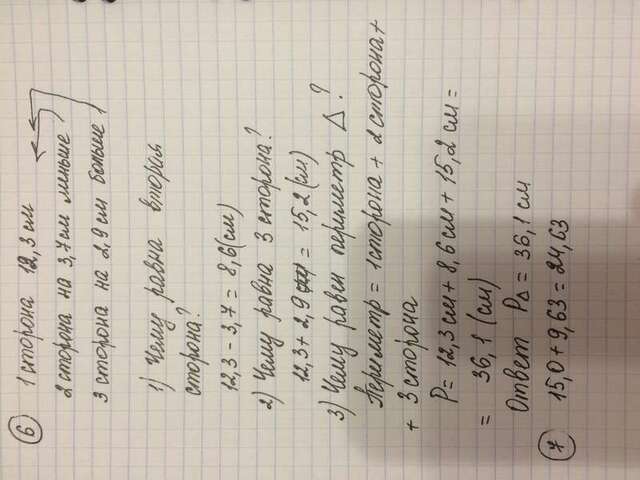 6 1 сторона 12,3 см
2 сторона на 3,7 см меньше
3 сторона на 2,9 см больше
1) Чему равна вторая
сторона?
12,3 - 3,7 = 8,6 (см)
2) Чему равна 3 сторона?
12,3 + 2,9 = 15,2 (см)
3) Чему равен периметр Δ?
Периметр = 1 сторона + 2 сторона +
+ 3 сторона
P = 12,3 см + 8,6 см + 15,2 см =
= 36,1 (см)
Ответ PΔ = 36,1 см
7 15,0 + 9,63 = 24,63